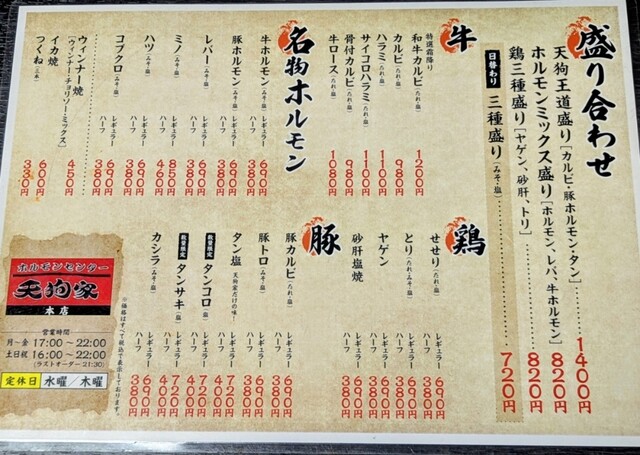 盛り合わせ
天狗王道盛り[カルビ・豚ホルモン・タン] 1400円
ホルモンミックス盛り[ホルモン、レバ、牛ホルモン] 820円
鶏三種盛り[ヤゲン、砂肝、トリ] 820円
日替わり 三種盛り(みそ・塩) 720円
牛
特選霜降り
和牛カルビ(たれ・塩) 1200円
カルビ(たれ・塩) 980円
ハラミ(たれ・塩) 1100円
サイコロハラミ(たれ・塩) 1100円
骨付カルビ(たれ・塩) 980円
牛ロース(たれ・塩) 1080円
名物ホルモン
牛ホルモン(みそ・塩) レギュラー 690円
ハーフ 380円
豚ホルモン(みそ・塩) レギュラー 690円
ハーフ 380円
レバー(みそ・塩) レギュラー 690円
ハーフ 380円
ミノ(みそ・塩) レギュラー 850円
ハーフ 460円
ハツ(みそ・塩) レギュラー 690円
ハーフ 380円
コブクロ(みそ・塩) レギュラー 690円
ハーフ 380円
ウィンナー焼
[ウィンナー・チョリソーミックス] 450円
イカ焼 600円
つくね(三本) 330円
鶏
せせり(たれ・塩) レギュラー 690円
ハーフ 380円
とり(たれ・みそ・塩) レギュラー 690円
ハーフ 380円
ヤゲン レギュラー 690円
ハーフ 380円
砂肝塩焼 レギュラー 690円
ハーフ 380円
豚
豚カルビ(たれ・塩) レギュラー 690円
ハーフ 380円
豚トロ(みそ・塩) レギュラー 690円
ハーフ 380円
タン塩 天狗家だけの味! レギュラー 720円
ハーフ 400円
数量限定 タンコロ(塩) レギュラー 720円
ハーフ 400円
数量限定 タンサキ(塩) レギュラー 720円
ハーフ 400円
カシラ(みそ・塩) レギュラー 690円
ハーフ 380円
※価格はすべて税込で表示しております。
ホルモンセンター
天狗家
本店
営業時間
月〜金 17:00〜22:00
土日祝 16:00〜22:00
(ラストオーダー21:30)
定休日 水曜/木曜